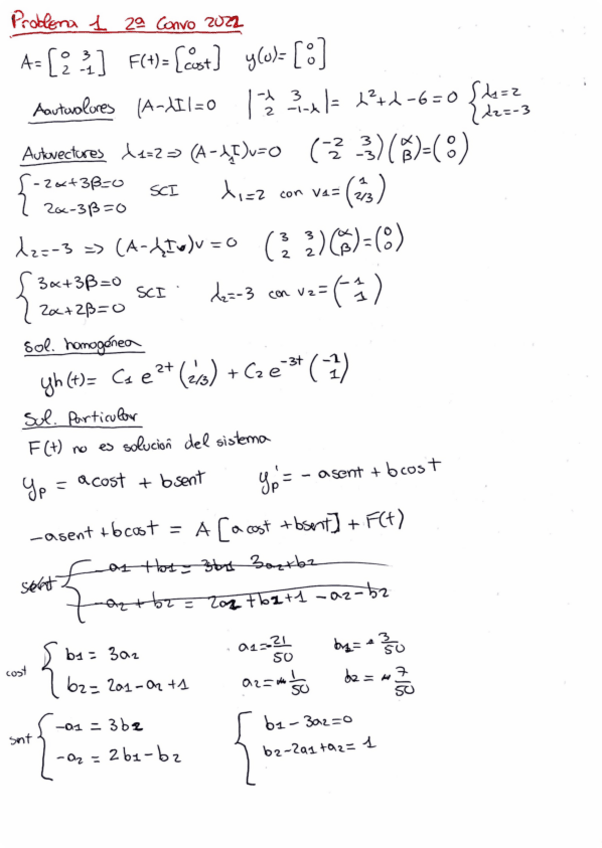 Problema 1 2ª Convo 2022
A = [0 3; 2 -1] F(t) = [0; cost] y(0) = [0; 0]
Aautovalores |A-λI| = 0 |-λ 3; 2 -1-λ| = λ²+λ-6 = 0 {λ1=2; λ2=-3
Autovectores λ1=2 => (A-λ1I)v=0 (-2 3; 2 -3)(α; β)=(0; 0)
{-2α+3β=0 SCI λ1=2 con v1=(1; 2/3)
2α-3β=0
λ2=-3 => (A-λ2I)v = 0 (3 3; 2 2)(α; β)=(0; 0)
{3α+3β=0 SCI λ2=-3 con v2=(-1; 1)
2α+2β=0
Sol. homogénea
yh(t) = C1 e^2t (1; 2/3) + C2 e^-3t (-1; 1)
Sol. Particular
F(t) no es solución del sistema
yp = a cost + b sent yp' = -a sent + b cost
-a sent + b cost = A [a cost + b sent] + F(t)
sent {-a1 + b1 = 3b1 3a2+b2
-a2 + b2 = 2a2 + b2 + 1 - a2 - b2
cost {b1 = 3a2 a1 = -21/50 b1 = -3/50
b2 = 2a1 - a2 + 1 a2 = -1/50 b2 = 7/50
snt {-a1 = 3b2 {b1 - 3a2 = 0
-a2 = 2b1 - b2 b2 - 2a1 + a2 = 1